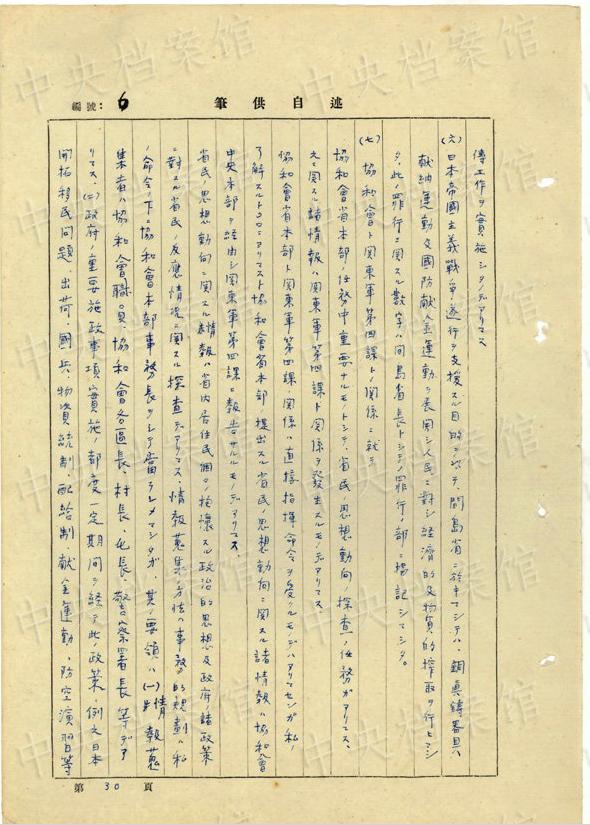 編號：6
筆供自述
傳工作ヲ實施シタノデアリマス
(六) 日本帝國主義戰爭ノ遂行ヲ支援スル目的ニ於テ、間島省ニ於キマシテハ、銅真鍮器具
献納運動及國防献金運動ヲ展開シ人民ニ對シ経濟的及物質的搾取ヲ行ヒマシ
タ、此ノ罪行ニ関スル數字ハ間島省長トシテノ罪行ノ部ニ揭記シマシタ。
(七) 協和會ト関東軍第四課トノ関係ニ就テ
協和會省本部ノ任務中重要ナルモノトシテ、省民ノ思想動向ノ探查ノ任務ガアリマス、
之ニ関スル諸情報ハ関東軍第四課ト関係ヲ發生スルモノデアリマス
協和會省本部ト関東軍第四課関係ハ直接指揮命令ヲ受クルモノデハアリマセンガ私ノ
了解スルトコロニアリマスト協和會省本部ノ提出スル省民ノ思想動向ニ関スル諸情報ハ協和會
中央本部ヲ経由シ関東軍第四課ニ報告サルルモノデアリマス、
省民ノ思想動向ニ関スル情報ハ省内居住民個々ノ抱懷スル政治的思想及政府ノ諸政策
ニ對スル省民ノ反應情況ニ関スル探查デアリマス、情報蒐集ノ方法ハ事務的規劃ハ私
ノ命令ノ下ニ協和會本部事務長ヲシテ當ラシメマシタガ、其ノ要領ハ (一) 情報蒐
集者ハ協和會職員、協和會各區長、村長、屯長、警察署長等デア
リマス、(二) 政府ノ重要施政事項實施ノ都度一定期間ヲ経テ此ノ政策例之日本
開拓移民問題、出荷、國兵、物資統制、配給制献金運動、防空演習等
第 30 頁
中央档案馆